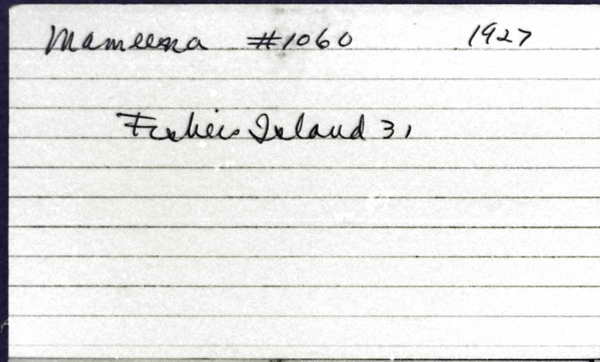 Mameena #1060 1927
Fishers Island 31